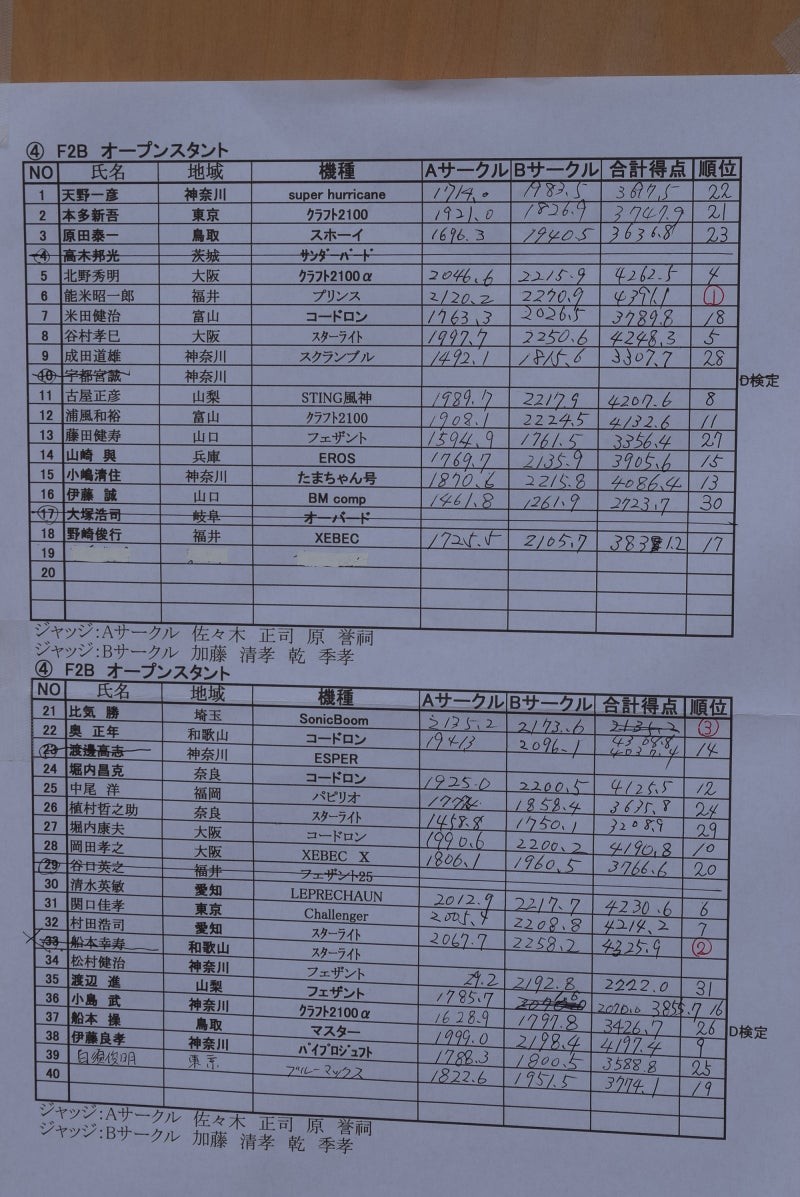 ④ F2B オープンスタント
NO 氏名 地域 機種 Aサークル Bサークル 合計得点 順位
1 天野一彦 神奈川 super hurricane 1714.0 1983.5 3697.5 22
2 本多新吾 東京 クラフト2100 1921.0 1826.9 3747.9 21
3 原田泰一 鳥取 スホーイ 1696.3 1940.5 3636.8 23
4 高木邦光 茨城 サンダーバード
5 北野秀明 大阪 クラフト2100α 2046.6 2215.9 4262.5 4
6 能米昭一郎 福井 プリンス 2120.2 2270.9 4391.1 ①
7 米田健治 富山 コードロン 1763.3 2026.5 3789.8 18
8 谷村孝巳 大阪 スターライト 1997.7 2250.6 4248.3 5
9 成田道雄 神奈川 スクランブル 1492.1 1815.6 3307.7 28
10 宇都宮誠 神奈川 D検定
11 古屋正彦 山梨 STING風神 1989.7 2217.9 4207.6 8
12 浦風和裕 富山 クラフト2100 1908.1 2224.5 4132.6 11
13 藤田健寿 山口 フェザント 1594.9 1761.5 3356.4 27
14 山崎 與 兵庫 EROS 1769.7 2135.9 3905.6 15
15 小嶋清住 神奈川 たまちゃん号 1870.6 2215.8 4086.4 13
16 伊藤 誠 山口 BM comp 1461.8 1261.9 2723.7 30
17 大塚浩司 岐阜 オーバード
18 野崎俊行 福井 XEBEC 1725.5 2105.7 3831.2 17
19
20
ジャッジ：Aサークル 佐々木 正司 原 誉祠
ジャッジ：Bサークル 加藤 清孝 乾 季孝
④ F2B オープンスタント
NO 氏名 地域 機種 Aサークル Bサークル 合計得点 順位
21 比気 勝 埼玉 SonicBoom 2135.2 2173.6 4308.8 ③
22 奥 正年 和歌山 コードロン 1941.3 2096.1 4037.4 14
23 渡邊高志 神奈川 ESPER
24 堀内昌克 奈良 コードロン 1925.0 2200.5 4125.5 12
25 中尾 洋 福岡 パピリオ 1858.4 3635.8 24
26 植村哲之助 奈良 スターライト 1458.8 1750.1 3208.9 29
27 堀内康夫 大阪 コードロン 1990.6 2200.2 4190.8 10
28 岡田孝之 大阪 XEBEC X 1806.1 1960.5 3766.6 20
29 谷口英之 福井 フェザント25
30 清水英敏 愛知 LEPRECHAUN 2012.9 2217.7 4230.6 6
31 関口佳孝 東京 Challenger 2005.4 2208.8 4214.2 7
32 村田浩司 愛知 スターライト 2067.7 2258.2 4325.9 ②
33 船本幸寿 和歌山 スターライト
34 松村健治 神奈川 フェザント 29.2 2192.8 2222.0 31
35 渡辺 進 山梨 フェザント 1785.7 2070.0 3855.7 16
36 小島 武 神奈川 クラフト2100α 1628.9 1797.8 3426.7 26
37 船本 操 鳥取 マスター 1999.0 2198.4 4197.4 9 D検定
38 伊藤良孝 神奈川 バイプロジェフト 1788.3 1800.5 3588.8 25
39 白須俊明 東京 ブルーマックス 1822.6 1951.5 3774.1 19
40
ジャッジ：Aサークル 佐々木 正司 原 誉祠
ジャッジ：Bサークル 加藤 清孝 乾 季孝